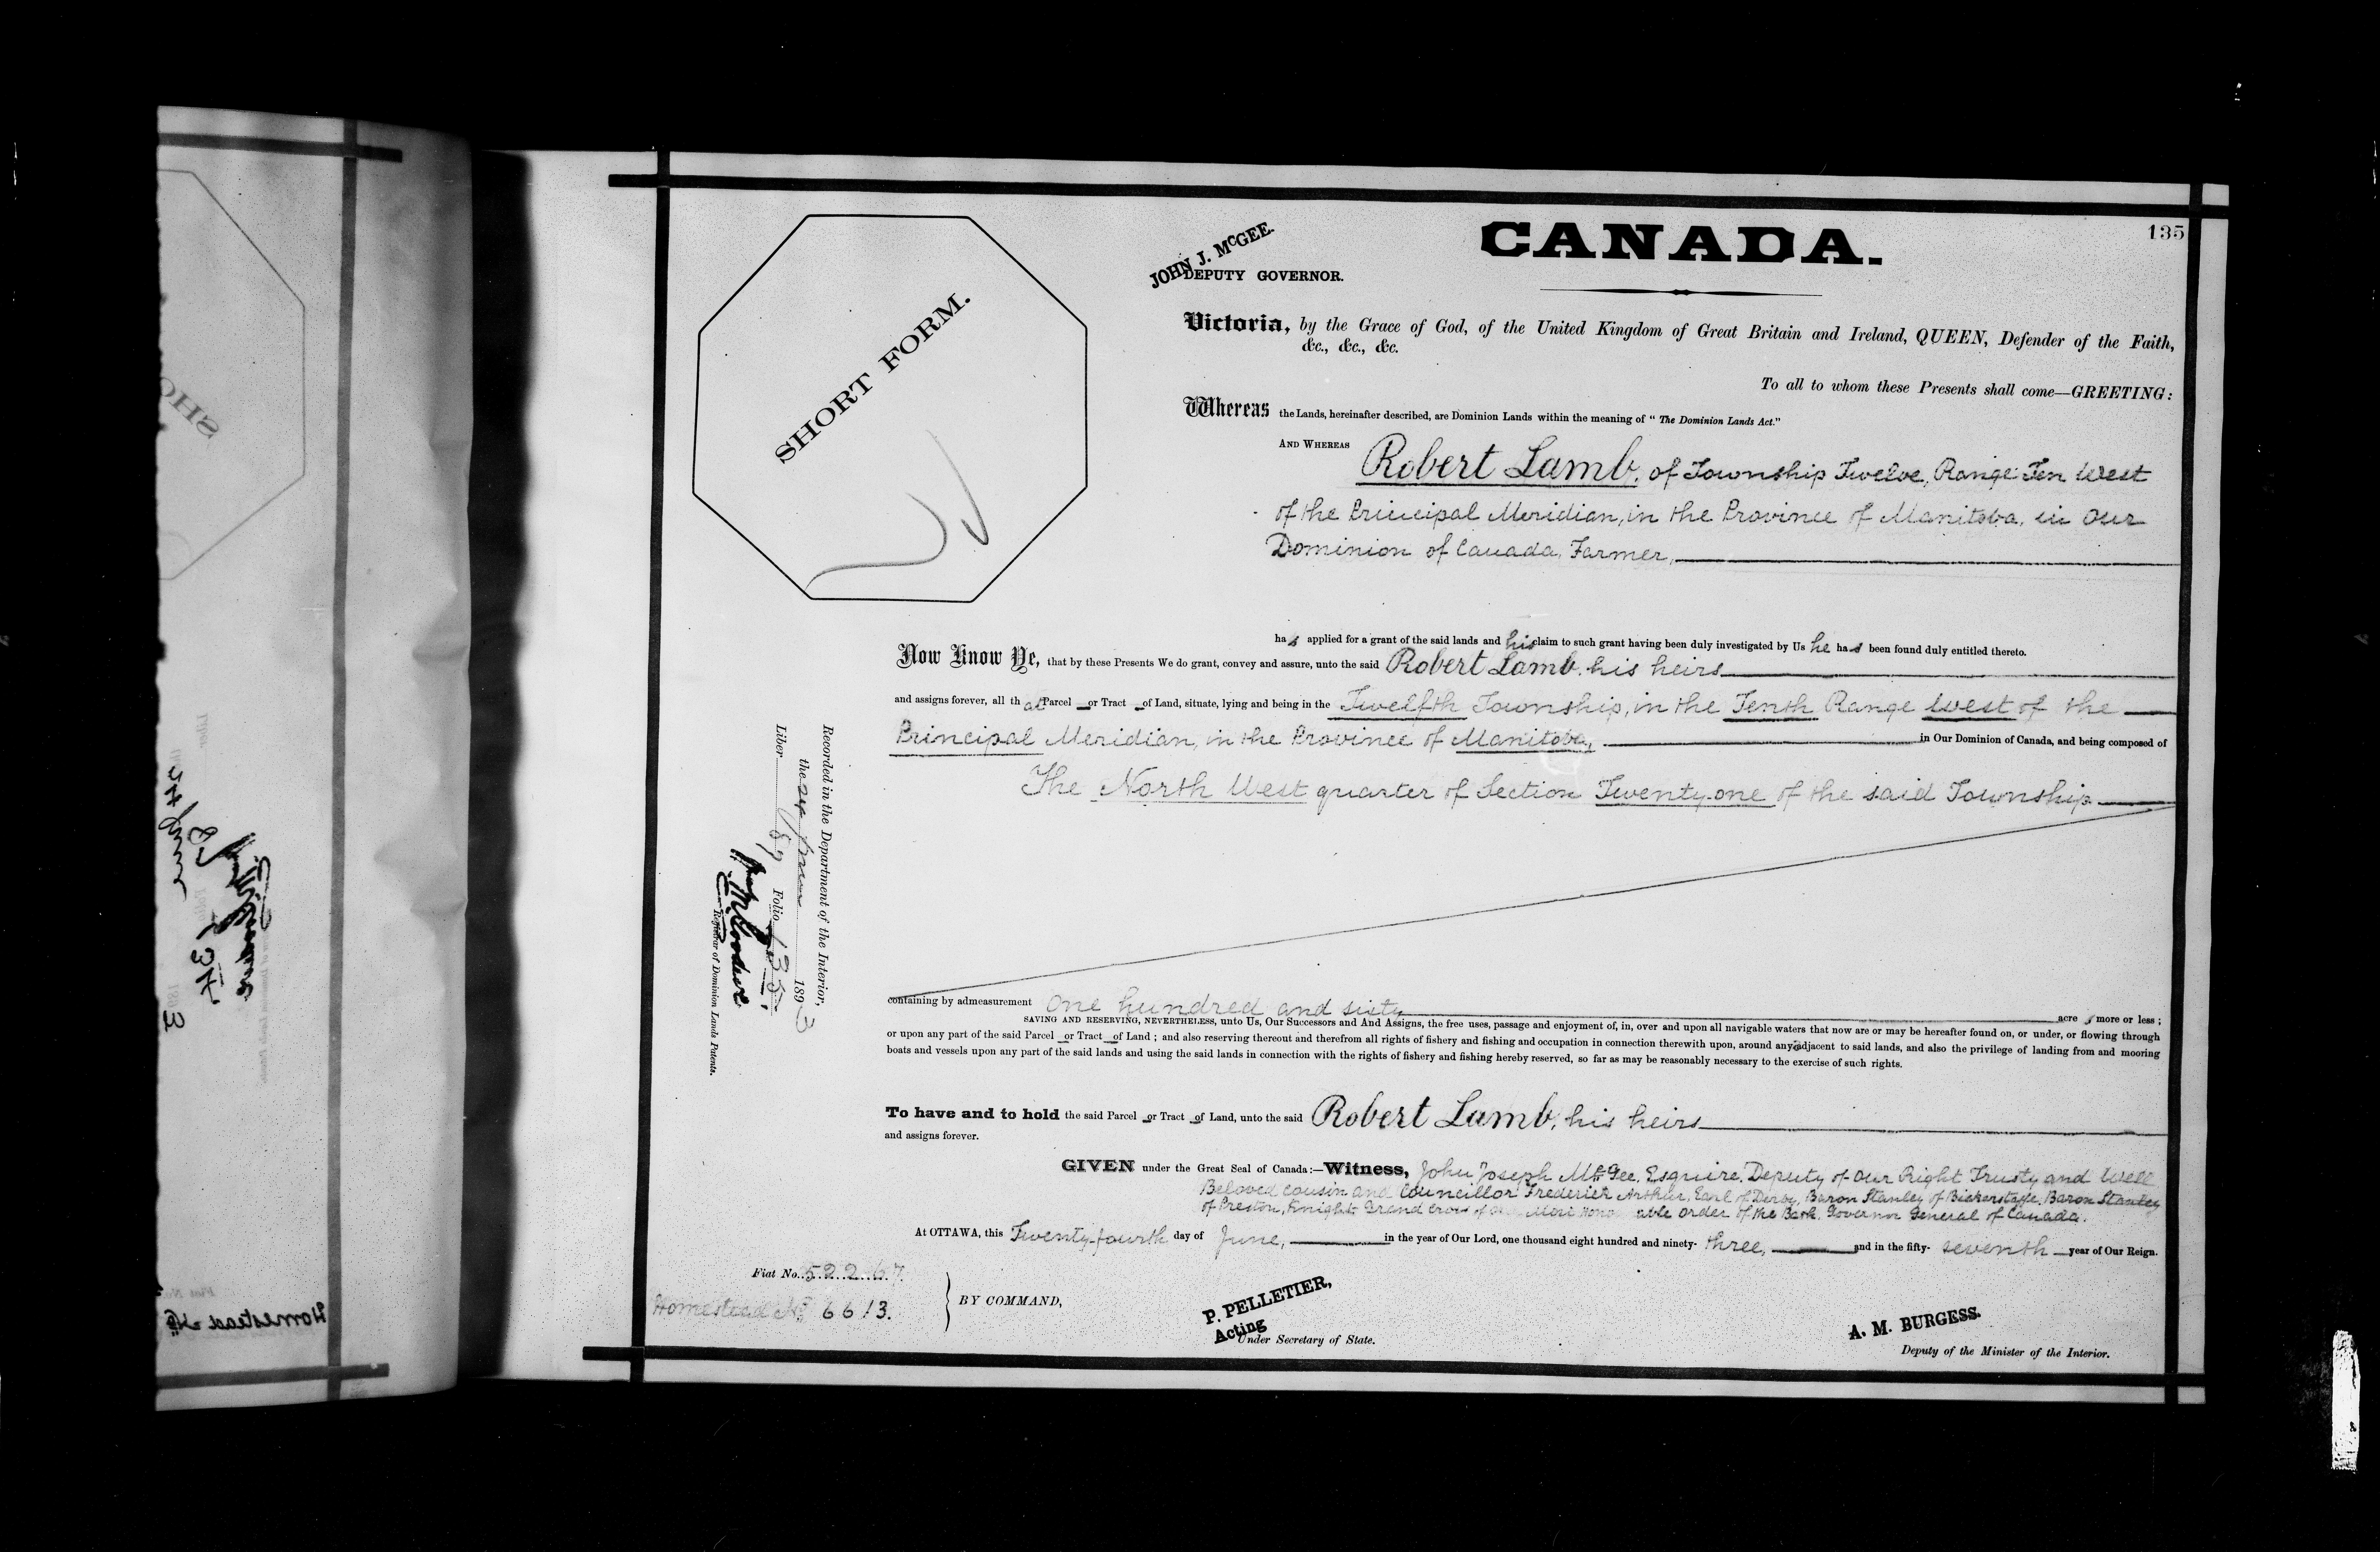 135
CANADA.
JOHN J. McGEE.
DEPUTY GOVERNOR.
SHORT FORM.
Victoria, by the Grace of God, of the United Kingdom of Great Britain and Ireland, QUEEN, Defender of the Faith,
&c., &c., &c.
To all to whom these Presents shall come—GREETING:
Whereas the Lands, hereinafter described, are Dominion Lands within the meaning of "The Dominion Lands Act."
AND WHEREAS Robert Lamb, of Township Twelve, Range Ten West
of the Principal Meridian, in the Province of Manitoba, in Our
Dominion of Canada, Farmer,
has applied for a grant of the said lands and his claim to such grant having been duly investigated by Us he has been found duly entitled thereto.
Now Know Ye, that by these Presents We do grant, convey and assure, unto the said Robert Lamb, his heirs
and assigns forever, all that Parcel or Tract of Land, situate, lying and being in the Twelfth Township, in the Tenth Range West of the
Principal Meridian, in the Province of Manitoba, in Our Dominion of Canada, and being composed of
The North West quarter of Section Twenty-one of the said Township
containing by admeasurement One hundred and sixty acres more or less;
SAVING AND RESERVING, NEVERTHELESS, unto Us, Our Successors and And Assigns, the free uses, passage and enjoyment of, in, over and upon all navigable waters that now are or may be hereafter found on, or under, or flowing through
or upon any part of the said Parcel or Tract of Land; and also reserving thereout and therefrom all rights of fishery and fishing and occupation in connection therewith upon, around any adjacent to said lands, and also the privilege of landing from and mooring
boats and vessels upon any part of the said lands and using the said lands in connection with the rights of fishery and fishing hereby reserved, so far as may be reasonably necessary to the exercise of such rights.
To have and to hold the said Parcel or Tract of Land, unto the said Robert Lamb, his heirs
and assigns forever.
GIVEN under the Great Seal of Canada:—Witness, John Joseph McGee, Esquire, Deputy of Our Right Trusty and Well
Beloved Cousin and Councillor Frederick Arthur, Earl of Derby, Baron Stanley of Bickerstaffe, Baron Stanley
of Preston, Knight Grand Cross of Our Most Honorable Order of the Bath, Governor General of Canada.
At OTTAWA, this Twenty-fourth day of June, in the year of Our Lord, one thousand eight hundred and ninety-three, and in the fifty-seventh year of Our Reign.
Fiat No. 52267.
Homestead No. 6613.
BY COMMAND,
P. PELLETIER,
Acting
Under Secretary of State.
A. M. BURGESS.
Deputy of the Minister of the Interior.
Recorded in the Department of the Interior,
the 24 June 1893
Liber 87 Folio 135.
Registrar of Dominion Lands Patents.
SHO
Homestead No